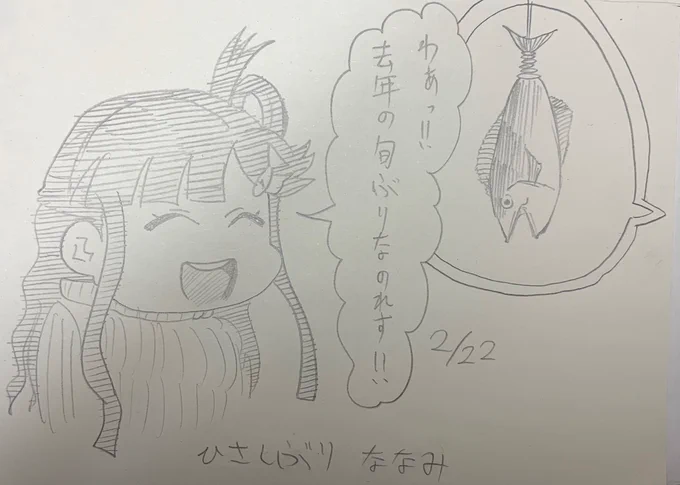 わあっ!!
去年の旬ぶりなのれす!!
2/22
ひさしぶり ななみ